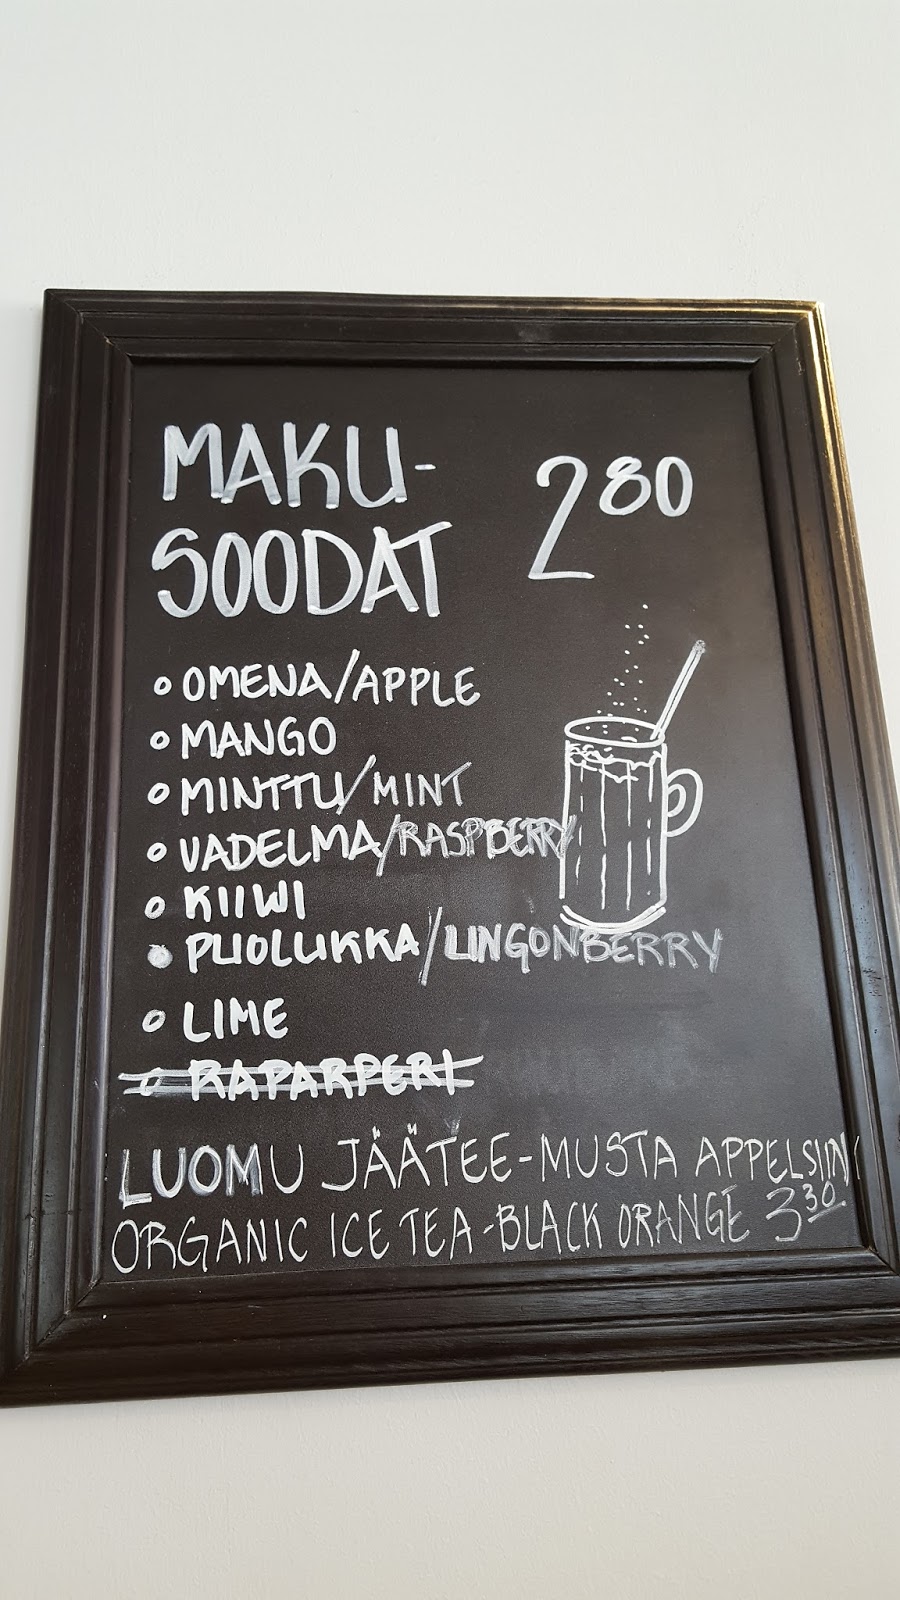 MAKU-
SOODAT 2 80
OMENA/APPLE
MANGO
MINTTU/MINT
VADELMA/RASPBERRY
KIIWI
PUOLUKKA/LINGONBERRY
LIME
RAPARPERI
LUOMU JÄÄTEE-MUSTA APPELSIINI
ORGANIC ICE TEA-BLACK ORANGE 3 30